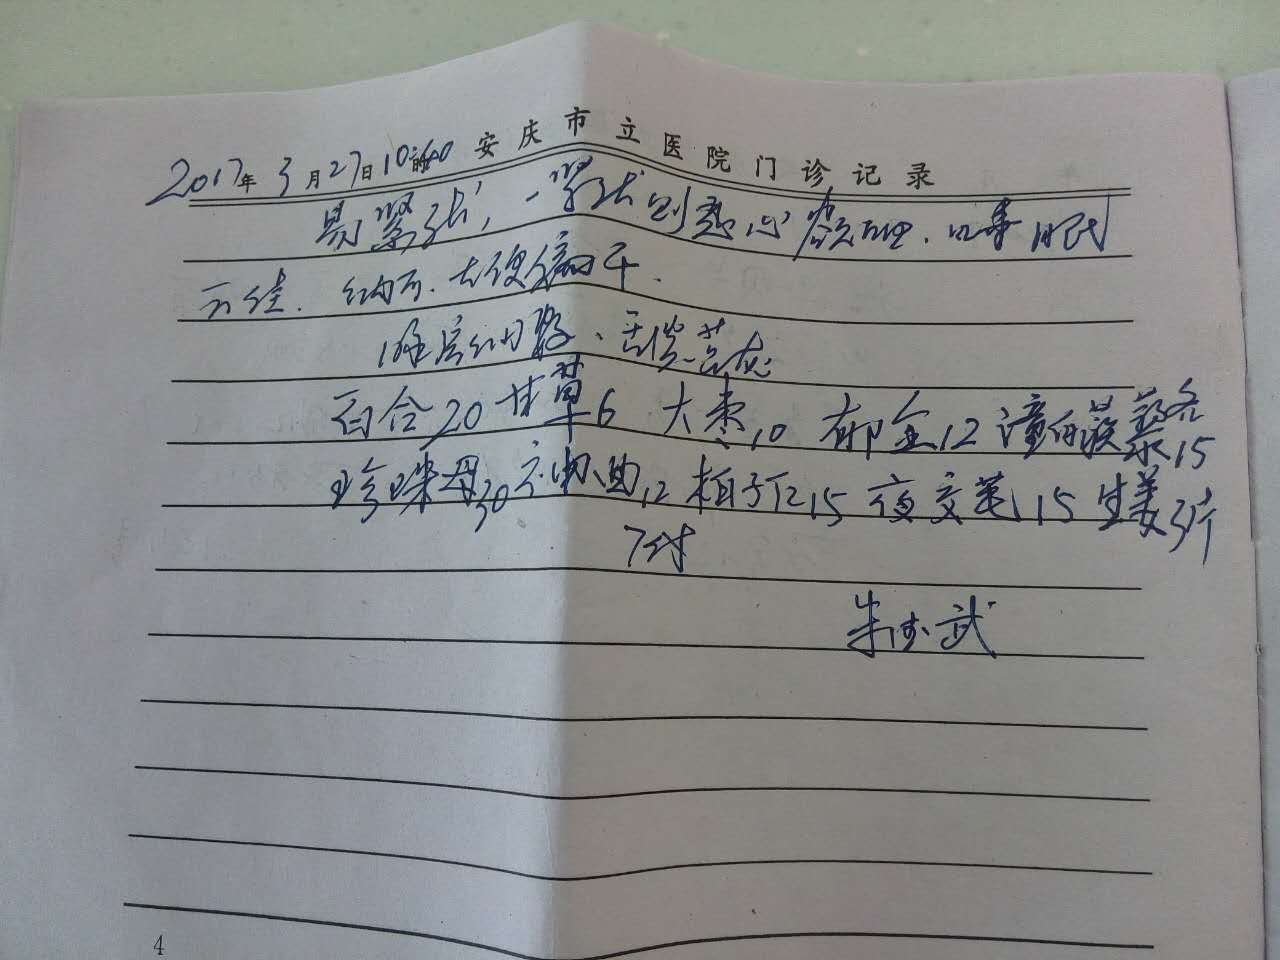 安庆市立医院门诊记录
2017年3月27日10时40
易紧张,一紧张则恶心欲吐.口干眠
不佳.纳可.大便偏干.
脉弦细数、舌淡苔
百合20 甘草6 大枣10 郁金12 合欢皮 各15
珍珠母30 六神曲12 柏子仁15 夜交藤15 生姜3片
7付
朱
4